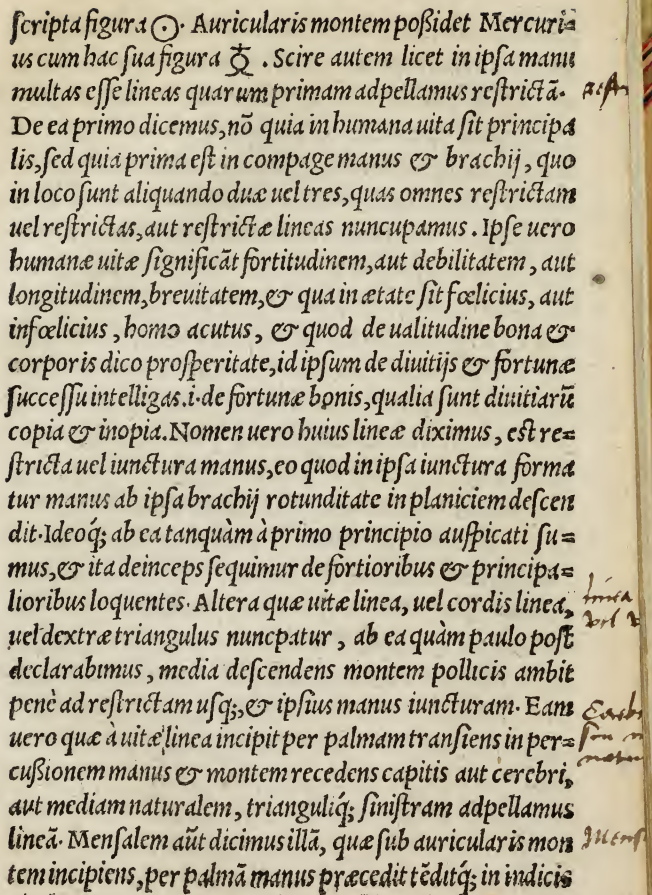 ſcripta figura ☉. Auricularis montem poßidet Mercuri=
us cum hac ſua figura ☿ . Scire autem licet in ipſa manu
multas eſſe lineas quarum primam adpellamus reſtrictã.
De ea primo dicemus, nõ quia in humana uita ſit principa
lis, ſed quia prima eſt in compage manus & brachij, quo
in loco ſunt aliquando duæ uel tres, quas omnes reſtrictam
uel reſtrictas, aut reſtrictæ lineas nuncupamus. Ipſe uero
humanæ uitæ ſignificãt fortitudinem, aut debilitatem, aut
longitudinem, breuitatem, & qua in ætate ſit fœlicius, aut
infœlicius, homo acutus, & quod de ualitudine bona &
corporis dico proſperitate, id ipſum de diuitijs & fortunæ
ſucceſſu intelligas.i. de fortunæ bonis, qualia ſunt diuitiarũ
copia & inopia. Nomen uero huius lineæ diximus, eſt re=
ſtricta uel iunctura manus, eo quod in ipſa iunctura forma
tur manus ab ipſa brachij rotunditate in planiciem deſcen
dit. Ideoq́; ab ea tanquàm à primo principio auſpicati ſu=
mus, & ita deinceps ſequimur de fortioribus & principa=
lioribus loquentes. Altera quæ uitæ linea, uel cordis linea,
uel dextræ triangulus nuncpatur, ab ea quàm paulo poſt
declarabimus, media deſcendens montem pollicis ambit
penè ad reſtrictam uſq;, & ipſius manus iuncturam. Eam
uero quæ à uitæ linea incipit per palmam tranſiens in per=
cußionem manus & montem recedens capitis aut cerebri,
aut mediam naturalem, trianguliq́; ſiniſtram adpellamus
lineã. Menſalem aũt dicimus illã, quæ ſub auricularis mon
tem incipiens, per palmã manus præcedit tẽditq́; in indicis
linea
vel